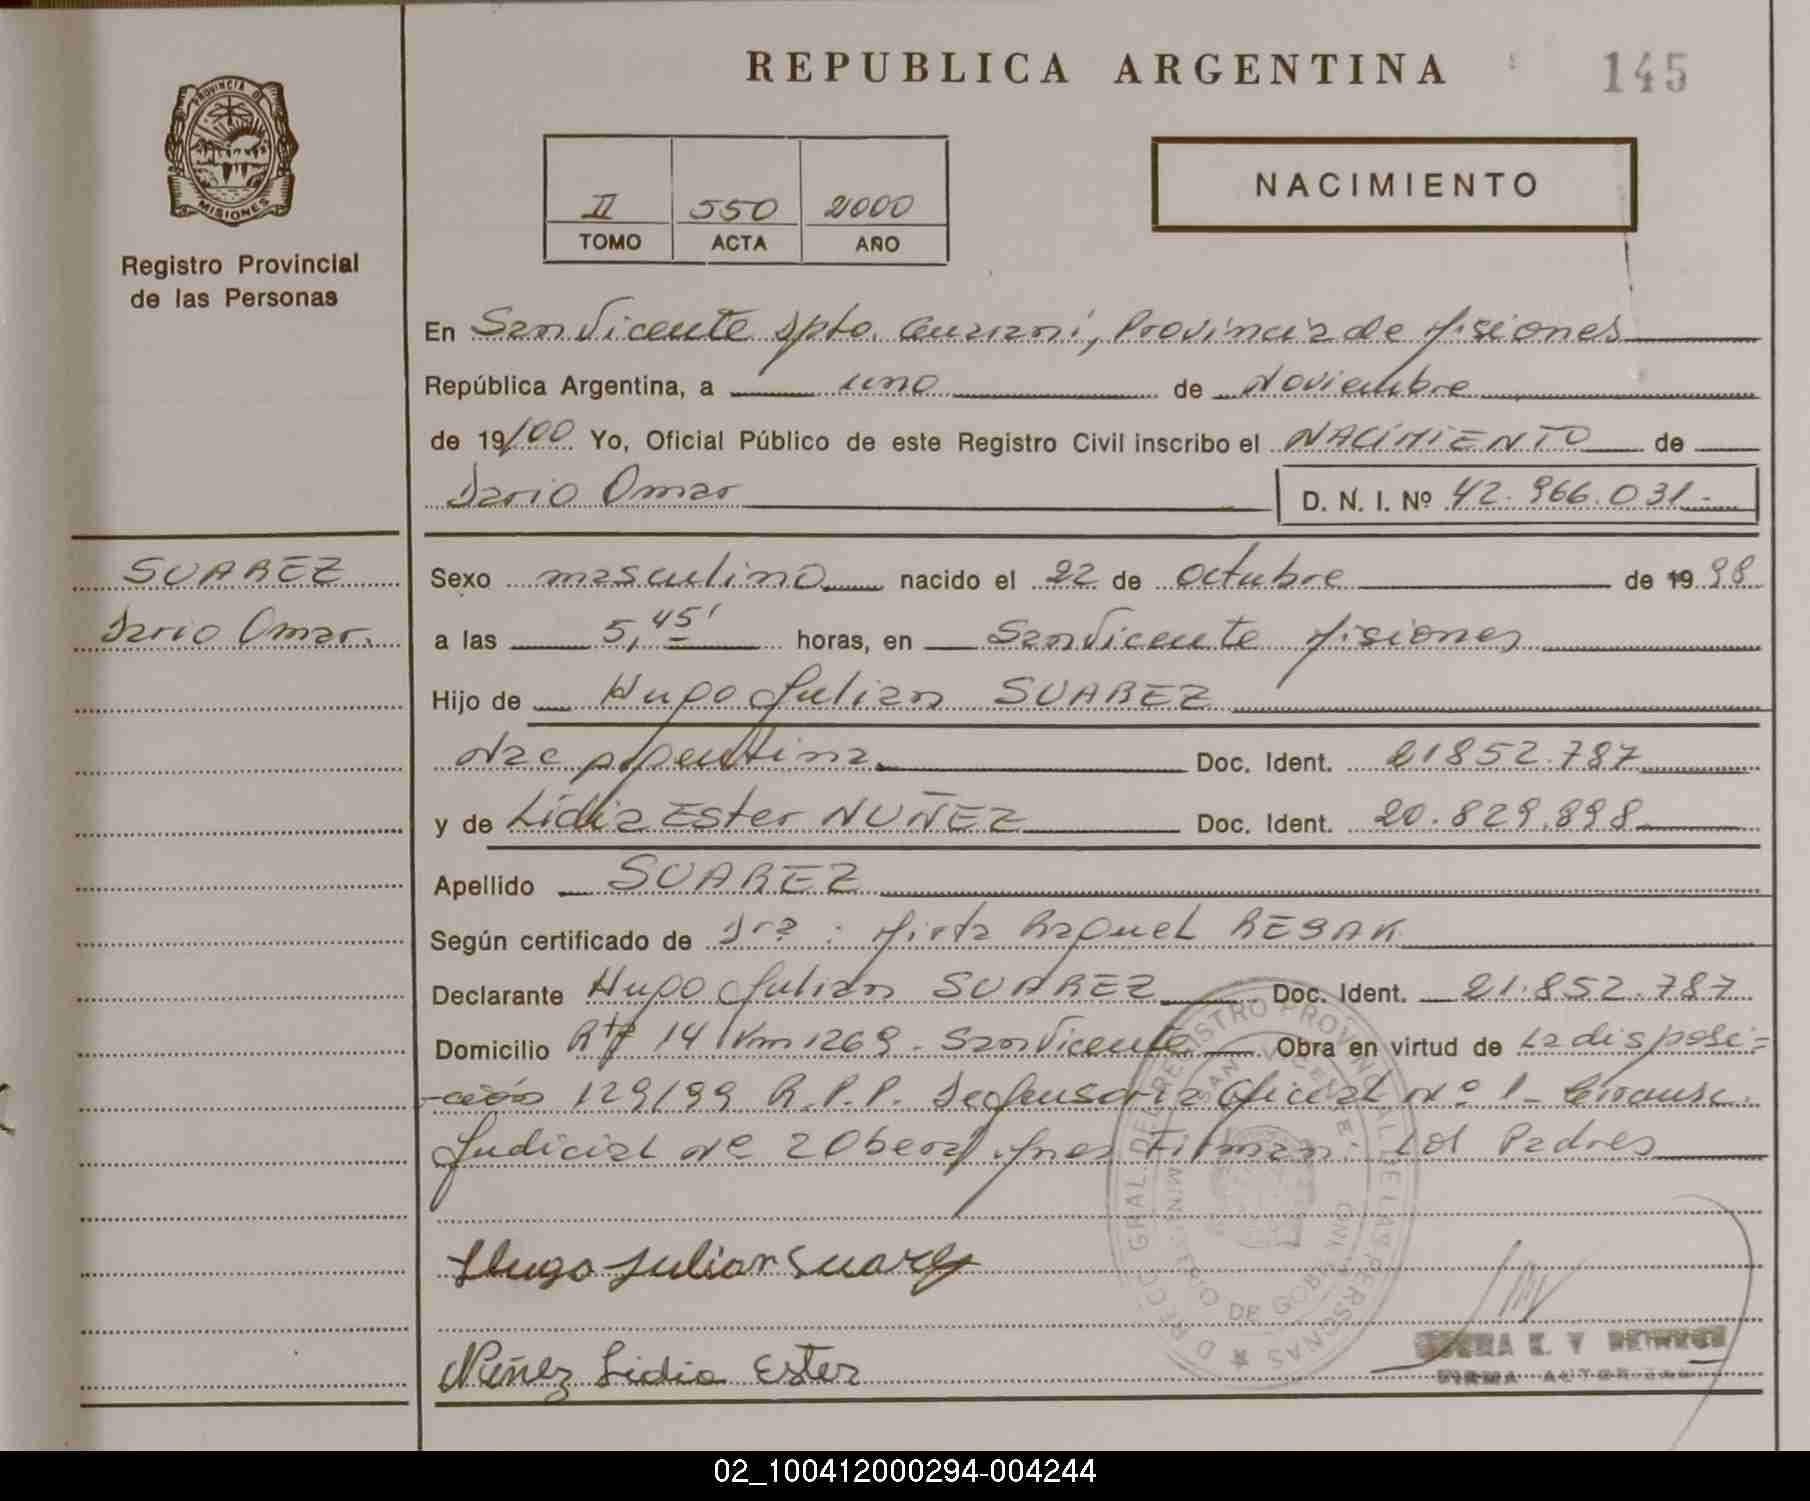 REPUBLICA ARGENTINA
145
PROVINCIA DE
MISIONES
Registro Provincial
de las Personas
II 550 2000
TOMO ACTA AÑO
NACIMIENTO
En San Vicente Dpto. Guarani, Provincia de Misiones
República Argentina, a uno de Noviembre
de 19/00 Yo, Oficial Público de este Registro Civil inscribo el NACIMIENTO de
Dario Omar D. N. I. Nº 42.966.031.-
SUAREZ
Dario Omar.
Sexo masculino nacido el 22 de octubre de 19 98
a las 5,45' horas, en San Vicente Misiones
Hijo de Hugo Julian SUAREZ
Nac Argentina Doc. Ident. 21852.787
y de Lidia Ester NUÑEZ Doc. Ident. 20.829.898
Apellido SUAREZ
Según certificado de Dra: Mirta Raquel RESAK
Declarante Hugo Julian SUAREZ Doc. Ident. 21.852.787
Domicilio 14 Km 1269 - San Vicente Obra en virtud de La disposi=
-ción 129/99 R.P.P. Defensoria Oficial Nº 1- Circunsc.
Judicial Nº 2 Obera Mnes Firman Los Padres
Hugo Julian Suarez
Nuñez Lidia Ester
DIRECC GRAL DEL REGISTRO PROVINCIAL DE LAS PERSONAS
SAN VICENTE
MINISTERIO DE GOBIERNO
FIRMA AUTORIZADA
02_100412000294-004244